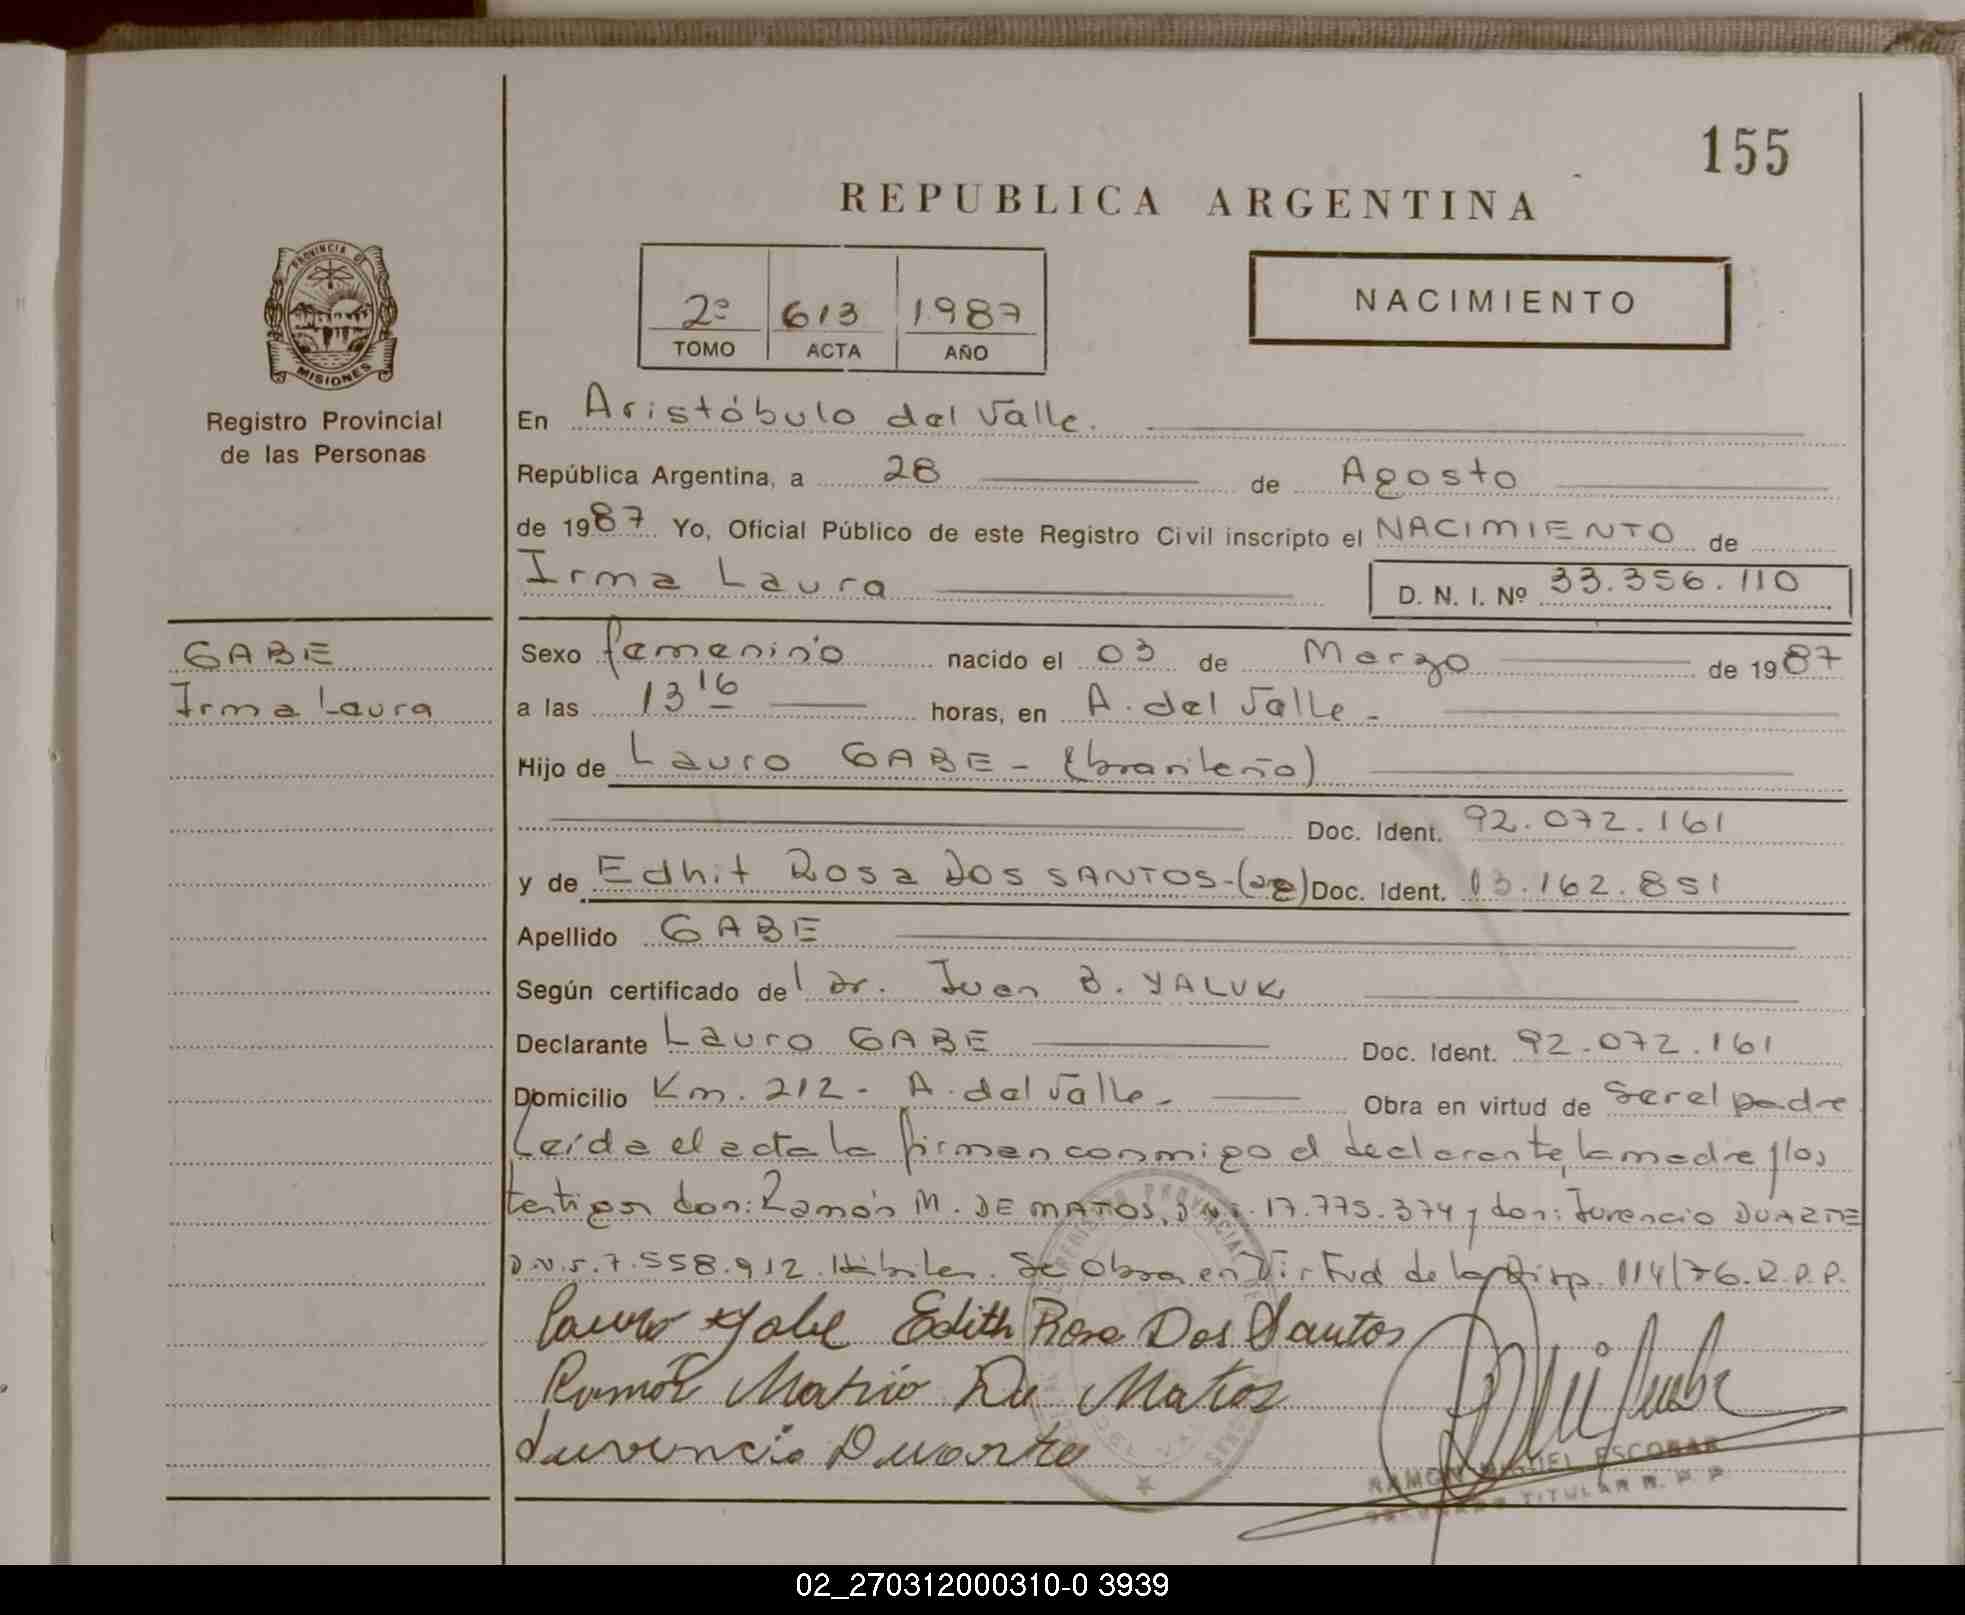 155
REPUBLICA ARGENTINA
PROVINCIA DE
MISIONES
Registro Provincial
de las Personas
2º 613 1987
TOMO ACTA AÑO
NACIMIENTO
En Aristóbulo del Valle.
República Argentina, a 28 de Agosto
de 1987 Yo, Oficial Público de este Registro Civil inscripto el NACIMIENTO de
Irma Laura D. N. I. Nº 33.356.110
GABE
Irma Laura
Sexo femenino nacido el 03 de Marzo de 1987
a las 13 16 horas, en A. del Valle -
Hijo de Lauro GABE - (brasileño)
Doc. Ident. 92.072.161
y de Edhit Rosa DOS SANTOS - Doc. Ident. 13.162.851
Apellido GABE
Según certificado del Dr. Juan B. YALUK
Declarante Lauro GABE Doc. Ident. 92.072.161
Domicilio Km. 212 - A. del Valle - Obra en virtud de ser el padre
Leída el acta la firman conmigo el declarante, la madre y los
testigos don: Ramón M. DE MATOS, D.N.I. 17.775.374 y don: Juvencio DUARTE
D.N.I. 7.558.912. Hábiles. Se obra en Virtud de la Disp. 114/76. R.P.P.
Lauro Gabe Edith Rosa Dos Santos
Ramón Mario De Matos
Juvencio Duarte
RAMON MIGUEL ESCOBAR
TITULAR R. P. P.
02_270312000310-0 3939